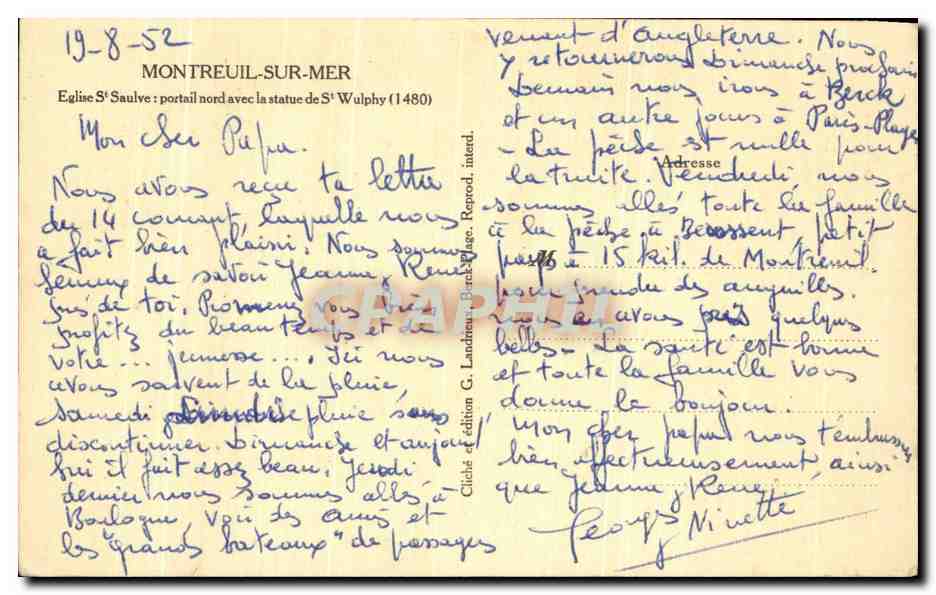 19-8-52
MONTREUIL-SUR-MER
Eglise St Saulve : portail nord avec la statue de St Wulphy (1480)
Mon cher Papa.
Nous avons reçu ta lettre
du 14 courant, laquelle nous
a fait bien plaisir. Nous sommes
heureux de savoir Jeanne, René
près de toi. Promenez vous bien
profitez du beau temps et de
votre ... jeunesse .... Ici nous
avons souvent de la pluie,
Samedi pluie sans
discontinuer. Dimanche et aujourd'
hui il fait assez beau. Jeudi
dernier nous sommes allés à
Boulogne, voir des amis et
les "grands bateaux" de passages
venant d'Angleterre. Nous
y retournerons Dimanche prochain
Demain nous irons à Berck
et un autre jours à Paris-Plage
- La pêche est nulle pour
la truite. Vendredi, nous
sommes allés toute la famille
à la pêche à Beaussent, petit
pays à 15 kil. de Montreuil
pour prendre des anguilles.
nous en avons pris quelques
belles - La santé est bonne
et toute la famille vous
donne le bonjour.
Mon cher papa nous t'embrassons
bien affectueusement ainsi
que Jeanne, René.
Georges Ninette
Adresse
Cliché et édition G. Landrieux, Berck-Plage. Reprod. interd.
CPAPHIL